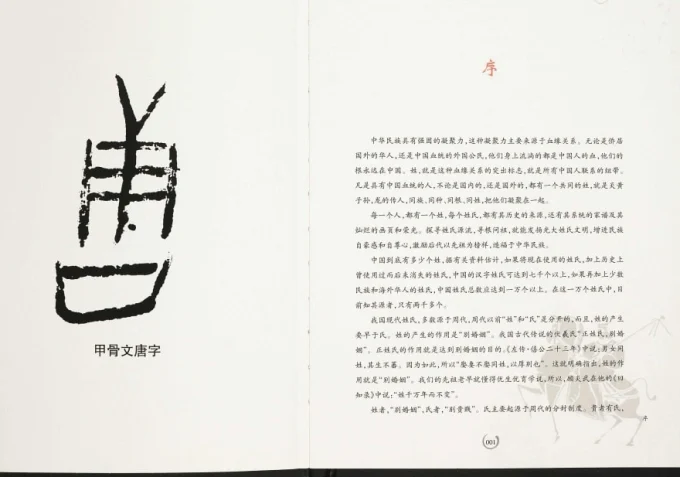 甲骨文唐字
序
中华民族具有强固的凝聚力,这种凝聚力主要来源于血缘关系。无论是侨居
国外的华人,还是中国血统的外国公民,他们身上流淌的都是中国人的血,他们的
根永远在中国。姓,就是这种血缘关系的突出标志,就是所有中国人联系的纽带。
凡是具有中国血统的人,不论是国内的,还是国外的,都有一个共同的姓,就是炎黄
子孙,龙的传人,同族、同种、同根、同姓,把他们凝聚在一起。
每一个人,都有一个姓,每个姓氏,都有其历史的来源,还有其系统的家谱及其
灿烂的画页和荣光。探寻姓氏源流,寻根问祖,就能发扬光大姓氏文明,增进民族
自豪感和自尊心,激励后代以先祖为榜样,造福于中华民族。
中国到底有多少个姓,据有关资料估计,如果将现在使用的姓氏,加上历史上
曾使用过而后来消失的姓氏,中国的汉字姓氏可达到七千个以上,如果再加上少数
民族和海外华人的姓氏,中国姓氏总数应达到一万个以上。在这一万个姓氏中,目
前知其源者,只有两千多个。
我国现代姓氏,多数源于周代,周代以前“姓”和“氏”是分开的,而且,姓的产生
要早于氏。姓的产生的作用是“别婚姻”。我国古代传说的伏羲氏“正姓氏,别婚
姻”。正姓氏的作用就是达到别婚姻的目的。《左传·僖公二十三年》中说:男女同
姓,其生不蕃。因为如此,所以“娶妻不娶同姓,以厚别也”。这就明确指出,姓的作
用就是“别婚姻”。我们的先祖老早就懂得优生优育学说,所以,顾炎武在他的《日
知录》中说:“姓千万年而不变”。
姓者,“别婚姻”,氏者,“别贵贱”。氏主要起源于周代的分封制度。贵者有氏,
序
001